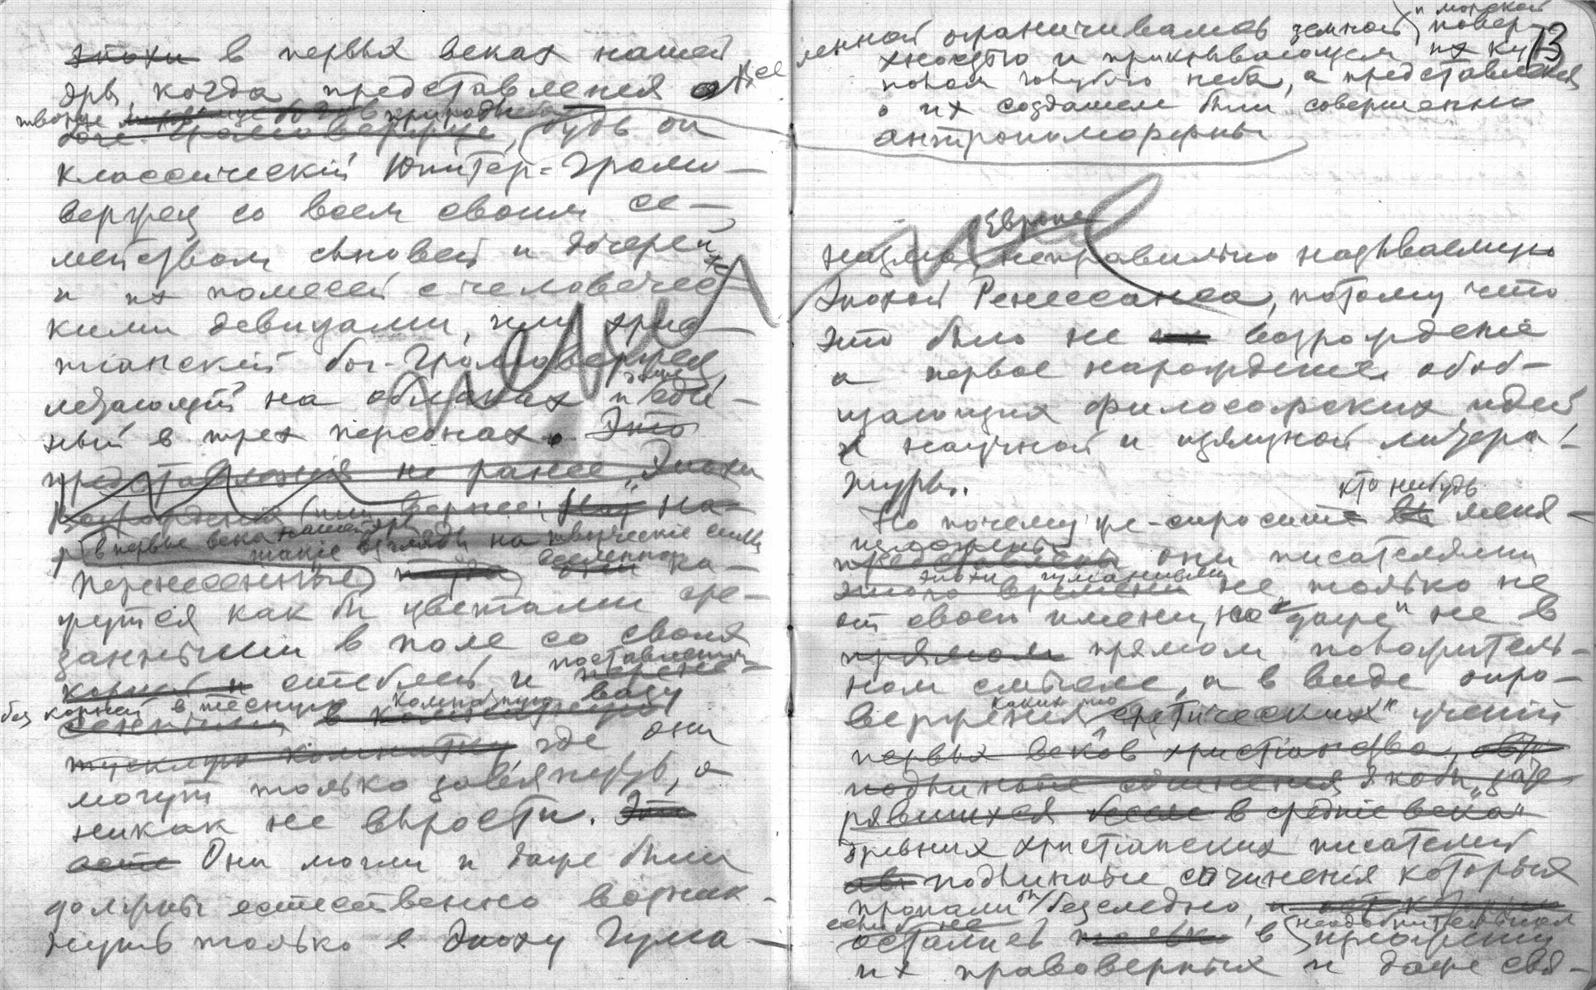 эпохи в первых веках нашей
эры, когда представления о
творце
боге громовержце, будь он
классический Юпитер-Громо-
вержец со всем своим се-
мейством сыновей и дочерей
и их помесей с человечес-
кими девицами, или хрис-
тианский бог-Громовержец
летающий на облаках и даже еди-
ный в трех персонах. Это
представления не ранее „Эпохи
Возрождения
в первые века нашей эры
такие взгляды на творческие силы
вселенной
Перенесенные ка-
жутся как бы цветами сре-
занными в поле со своих
корней и стеблей и поставлены
без корней в тесную комнатную вазу
тусклую комнатку где они
могут только завянуть, а
никак не вырости. Эти
Они могли и даже были
должны естественно возник-
нуть только в Эпоху Гума-
13
и морской
ленной ограничивались земной повер-
хностью и прикрывающем их ку-
полом голубого неба, а представления
о их создателе были совершенно
антропоморфны
Европе
низма, неправильно называемую
Эпохой Ренессанса, потому что
это было не возрождение
а первое нарождение обоб-
щающих философских идей
и научной и изящной литера-
туры.
Но почему же-спросит кто нибудь меня -
изложены
представлены они писателями
эпохи гуманизма
этого времени не только не
от своего имени, но „даже" не в
прямом прямом повориттель-
ном смысле, а в виде опро-
вержения каких то „еретических" учений
первых веков христианства,
подлинные сочинения якобы зате-
рявшихся в средние века"
древних христианских писателей
подлинные сочинения которых
пропали бы безследно,
если бы не
остались только в
их правоверных и даже свя-